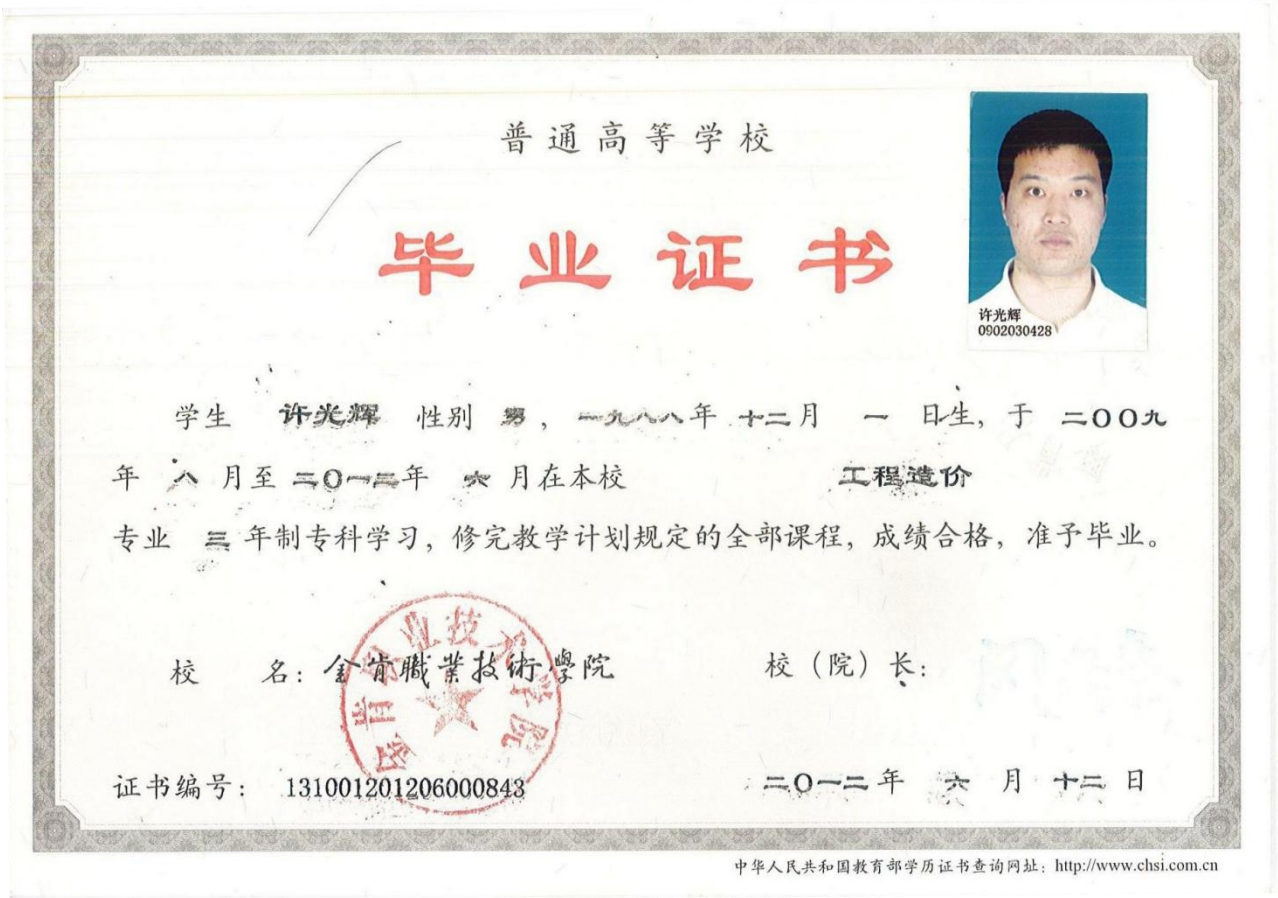 普通高等学校
毕业证书
许光辉
0902030428
学生 许光辉 性别 男，一九八八年 十二月 一 日生，于 二〇〇九
年 八 月至 二〇一二年 六 月在本校 工程造价
专业 三 年制专科学习，修完教学计划规定的全部课程，成绩合格，准予毕业。
校 名：金肯職業技術學院
校（院）长：
金肯职业技术学院
证书编号：131001201206000843
二〇一二年 六 月 十二 日
中华人民共和国教育部学历证书查询网址：http://www.chsi.com.cn